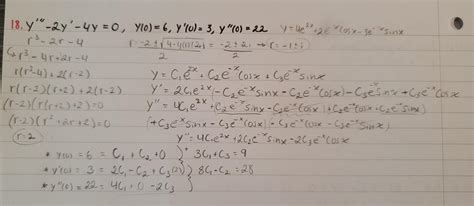 18. y''' - 2y' - 4y = 0, y(0) = 6, y'(0) = 3, y''(0) = 22 y = 4e^2x + 2e^-x cosx - 3e^-x sinx
r³ - 2r - 4
r = -2 ± √4-4(1)(2) / 2 = -2 ± 2i / 2 → r = -1 ± i
r³ - 4r + 2r - 4
r(r²-4) + 2(r-2)
y = C₁e^2x + C₂e^-x cosx + C₃e^-x sinx
r(r-2)(r+2) + 2(r-2)
y' = 2C₁e^2x - C₂e^-x sinx - C₂e^-x cosx - C₃e^-x sinx + C₃e^-x cosx
r(r-2)(r+2)+2=0
y'' = 4C₁e^2x + C₂e^-x sinx - C₂e^-x cosx + C₂e^-x cosx + C₂e^-x sinx
(r-2)(r²+2r+2)=0
+C₃e^-x sinx - C₃e^-x cosx - C₃e^-x sinx - C₃e^-x cosx
r=2
y'' = 4C₁e^2x + 2C₂e^-x sinx - 2C₃e^-x cosx
* y(0) = 6 = C₁ + C₂ + 0 3C₁ + C₃ = 9
* y'(0) = 3 = 2C₁ - C₂ + C₃ 8C₁ - C₂ = 28
* y''(0) = 22 = 4C₁ + 0 - 2C₃